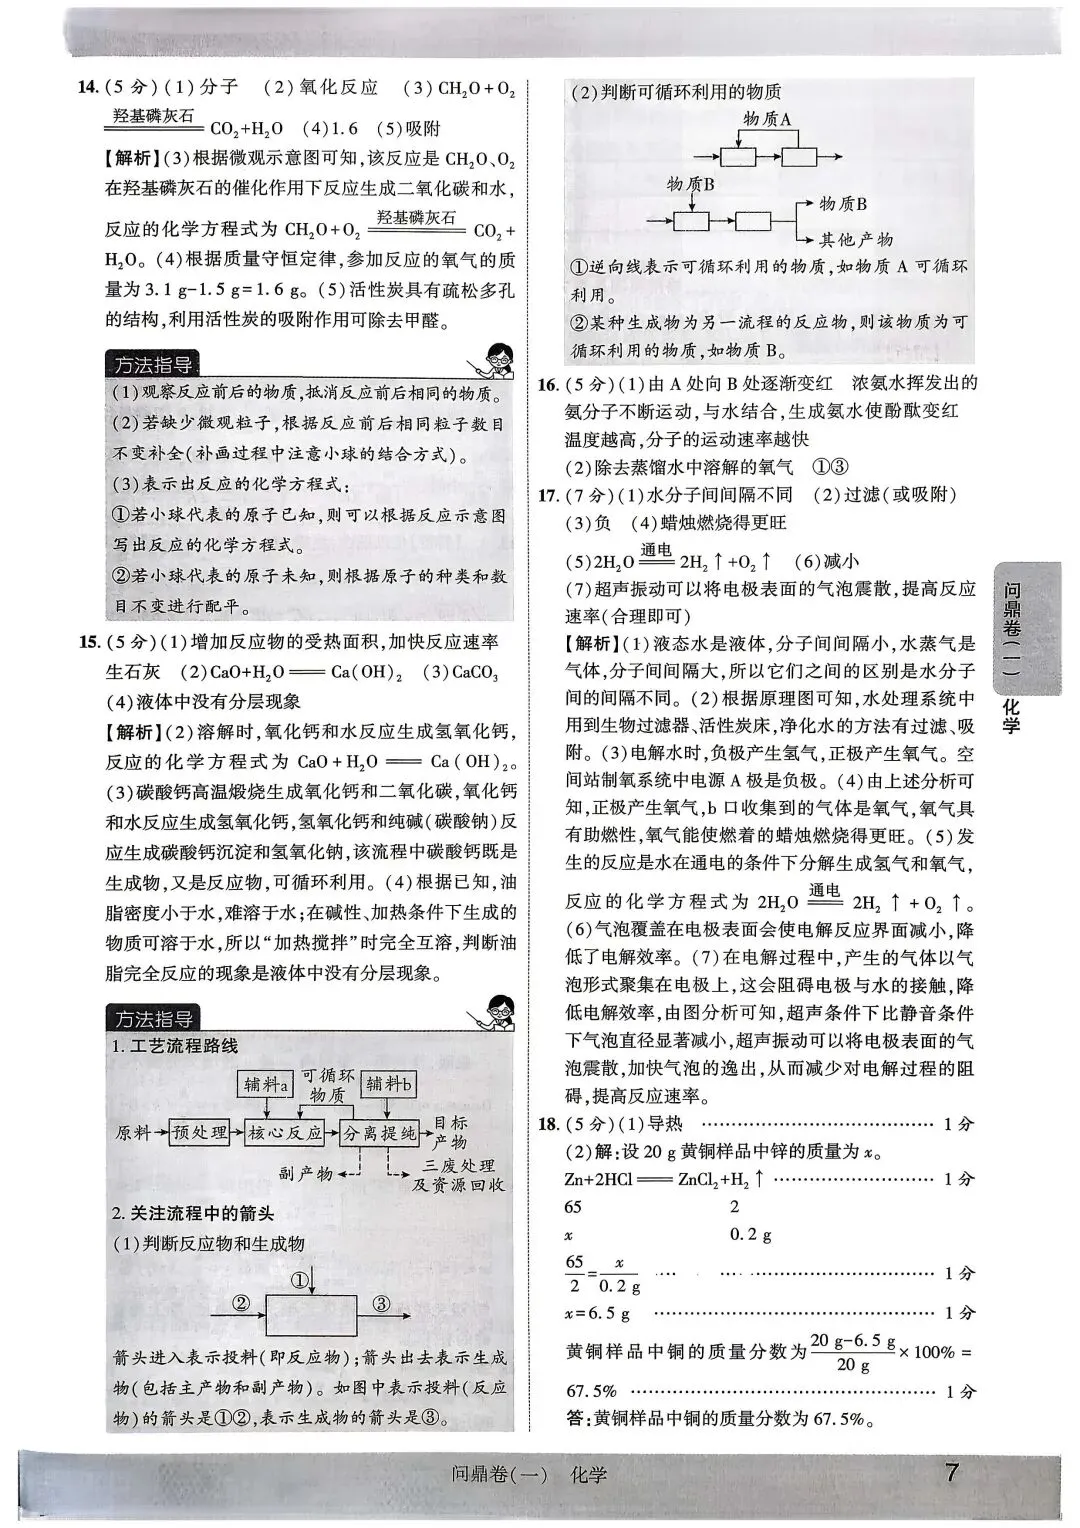 14. (5 分) (1) 分子 (2) 氧化反应 (3) CH₂O + O₂
羟基磷灰石
═══ CO₂+H₂O (4) 1.6 (5) 吸附
【解析】(3)根据微观示意图可知,该反应是 CH₂O、O₂
在羟基磷灰石的催化作用下反应生成二氧化碳和水,
反应的化学方程式为 CH₂O+O₂ ═══羟基磷灰石═══ CO₂+
H₂O。(4)根据质量守恒定律,参加反应的氧气的质
量为 3.1 g-1.5 g=1.6 g。(5)活性炭具有疏松多孔
的结构,利用活性炭的吸附作用可除去甲醛。
方法指导
(1)观察反应前后的物质,抵消反应前后相同的物质。
(2)若缺少微观粒子,根据反应前后相同粒子数目
不变补全(补画过程中注意小球的结合方式)。
(3)表示出反应的化学方程式:
①若小球代表的原子已知,则可以根据反应示意图
写出反应的化学方程式。
②若小球代表的原子未知,则根据原子的种类和数
目不变进行配平。
15. (5 分) (1)增加反应物的受热面积,加快反应速率
生石灰 (2) CaO+H₂O ═══ Ca(OH)₂ (3) CaCO₃
(4)液体中没有分层现象
【解析】(2)溶解时,氧化钙和水反应生成氢氧化钙,
反应的化学方程式为 CaO + H₂O ═══ Ca(OH)₂。
(3)碳酸钙高温煅烧生成氧化钙和二氧化碳,氧化钙
和水反应生成氢氧化钙,氢氧化钙和纯碱(碳酸钠)反
应生成碳酸钙沉淀和氢氧化钠,该流程中碳酸钙既是
生成物,又是反应物,可循环利用。(4)根据已知,油
脂密度小于水,难溶于水;在碱性、加热条件下生成的
物质可溶于水,所以“加热搅拌”时完全互溶,判断油
脂完全反应的现象是液体中没有分层现象。
方法指导
1. 工艺流程路线
辅料a 可循环物质 辅料b
原料 预处理 核心反应 分离提纯 目标产物
副产物 三废处理及资源回收
2. 关注流程中的箭头
(1)判断反应物和生成物
①
② ③
箭头进入表示投料(即反应物);箭头出去表示生成
物(包括主产物和副产物)。如图中表示投料(反应
物)的箭头是①②,表示生成物的箭头是③。
(2)判断可循环利用的物质
物质A
物质B
物质B
其他产物
①逆向线表示可循环利用的物质,如物质 A 可循环
利用。
②某种生成物为另一流程的反应物,则该物质为可
循环利用的物质,如物质 B。
16. (5 分) (1)由 A 处向 B 处逐渐变红 浓氨水挥发出的
氨分子不断运动,与水结合,生成氨水使酚酞变红
温度越高,分子的运动速率越快
(2)除去蒸馏水中溶解的氧气 ①③
17. (7 分) (1)水分子间间隔不同 (2)过滤(或吸附)
(3)负 (4)蜡烛燃烧得更旺
(5) 2H₂O ═通电═ 2H₂↑+O₂↑ (6)减小
(7)超声振动可以将电极表面的气泡震散,提高反应
速率(合理即可)
【解析】(1)液态水是液体,分子间间隔小,水蒸气是
气体,分子间间隔大,所以它们之间的区别是水分子
间的间隔不同。(2)根据原理图可知,水处理系统中
用到生物过滤器、活性炭床,净化水的方法有过滤、吸
附。(3)电解水时,负极产生氢气,正极产生氧气。空
间站制氧系统中电源 A 极是负极。(4)由上述分析可
知,正极产生氧气,b 口收集到的气体是氧气,氧气具
有助燃性,氧气能使燃着的蜡烛燃烧得更旺。(5)发
生的反应是水在通电的条件下分解生成氢气和氧气,
反应的化学方程式为 2H₂O ═通电═ 2H₂↑ + O₂↑。
(6)气泡覆盖在电极表面会使电解反应界面减小,降
低了电解效率。(7)在电解过程中,产生的气体以气
泡形式聚集在电极上,这会阻碍电极与水的接触,降
低电解效率,由图分析可知,超声条件下比静音条件
下气泡直径显著减小,超声振动可以将电极表面的气
泡震散,加快气泡的逸出,从而减少对电解过程的阻
碍,提高反应速率。
18. (5 分) (1)导热 ………………………… 1 分
(2)解:设 20 g 黄铜样品中锌的质量为 x。
Zn+2HCl ═══ ZnCl₂+H₂↑ ………………… 1 分
65 2
x 0.2 g
65/2 = x/0.2 g ………………… 1 分
x=6.5 g ………………………… 1 分
黄铜样品中铜的质量分数为 (20 g-6.5 g)/20 g × 100% =
67.5% ………………………… 1 分
答:黄铜样品中铜的质量分数为 67.5%。
问鼎卷(一) 化学
问鼎卷(一) 化学 7